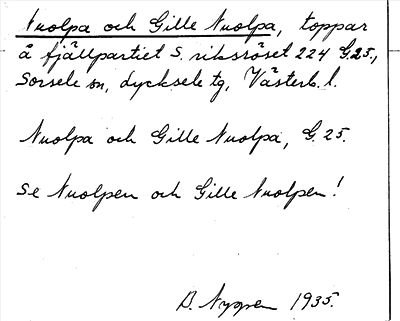 Nuolpa och Gille Nuolpa, toppar
å fjällpartiet S. riksröset 224 G.25.,
Sorsele sn, Lycksele tg, Västerb. l.
Nuolpa och Gille Nuolpa, G. 25.
Se Nuolpen och Gille Nuolpen!
B. Nygren 1935.